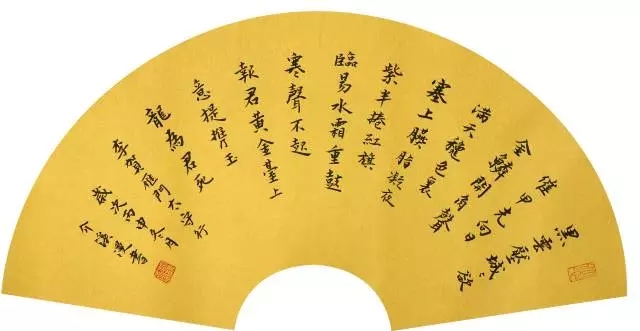 黑雲壓城〻欲
催甲光向日
金鱗開角聲
滿天穐色裏
塞上臙脂凝夜
紫半捲紅旗
臨易水霜重鼓
寒聲不起
報君黃金臺上
意提攜玉
龍為君死
李賀雁門太守行
歲次丙申冬月
書